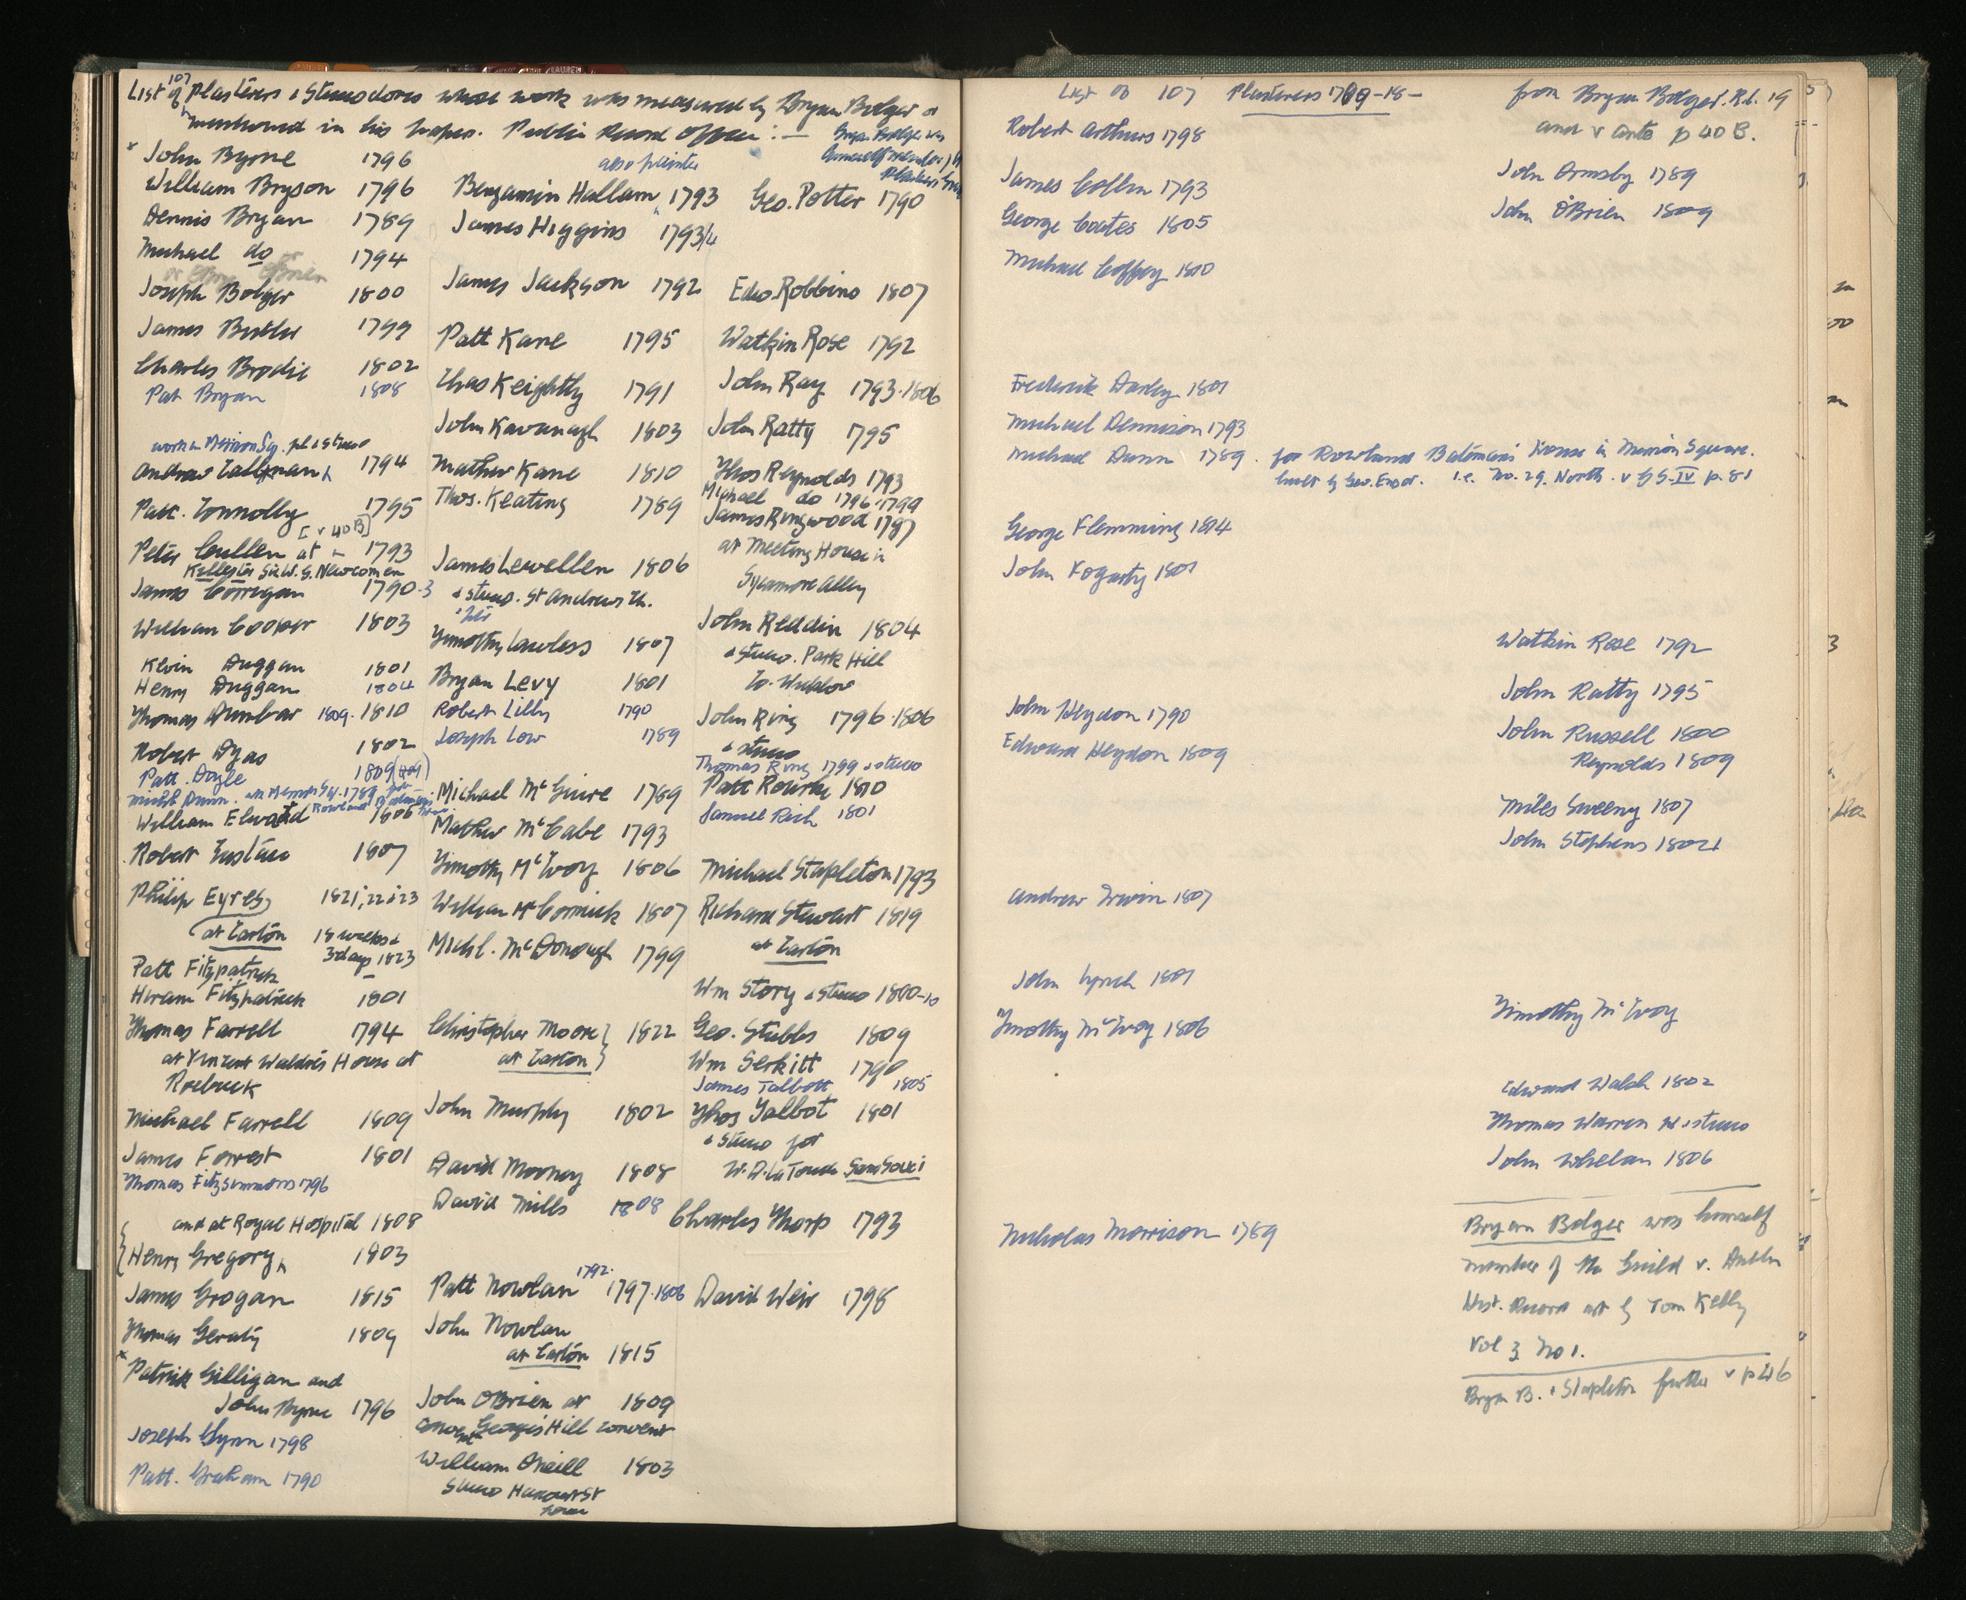 List of 107 Plasterers & Stuccodores whose work was measured by Bryan Bolger or
mentioned in his papers. Public Record Office :—
Bryan Bolger was
himself member
x John Byrne 1796
William Bryson 1796
Dennis Bryan 1789
Michael do 1794
or O'Brien
Joseph Bolger 1800
James Butler 1799
Charles Brodie 1802
Pat Bryan 1808
work in Merrion Sq. pl & stucco
Andrew Callnan 1794
Patt. Connolly 1795
[v 40B]
Peter Cullen at 1793
Killester Sir W. G. Newcomen
James Corrigan 1790-3
William Cooper 1803
Kevin Duggan 1801
Henry Duggan 1804
Thomas Dunbar 1809. 1810
Robert Dyas 1802
Patt. Doyle 1809 (409)
Michl Dunn. in Merrion Sq. 1789 for
Rowland Bateman's House
William Elward 1806
Robert Eustace 1807
Philip Eyres, 1821, 22 & 23
at Carton 18 weeks &
3 days 1823
Patt Fitzpatrick
Hiram Fitzpatrick 1801
Thomas Farrell 1794
at Vincent Waldre's House at
Roebuck
Michael Farrell 1809
James Forrest 1801
Thomas Fitzsimmons 1796
and at Royal Hospital 1808
Henry Gregory 1803
James Grogan 1815
Thomas Geraty 1809
x Patrick Gilligan and
John Byrne 1796
Joseph Glynn 1798
Patt. Graham 1790
also painter
Benjamin Hallam 1793
James Higgins 1793/4
James Jackson 1792
Patt Kane 1795
Thos Keightly 1791
John Kavanagh 1803
Mathew Kane 1810
Thos. Keating 1789
James Lewellen 1806
& stucco. St Andrews Ch.
Timothy Lawless 1807
Bryan Levy 1801
Robert Lilly 1790
Joseph Low 1789
Michael McGuire 1789
Mathew McCabe 1793
Timothy McEvoy 1806
William McCormick 1807
Michl. McDonough 1799
Christopher Moore } 1822
at Carton }
John Murphy 1802
David Mooney 1808
David Mills 1808
Patt Nowlan 1792. 1797. 1806
John Nowlan
at Carton 1815
John OBrien at 1809
Georges Hill Convent
William Oneill 1803
Stucco Harcourt St
house
Geo. Potter 1790
Edw. Robbins 1807
Watkin Rose 1792
John Ray 1793. 1806
John Ratty 1795
Thos Reynolds 1793
Michael do 1796. 1799
James Ringwood 1787
at Meeting House in
Sycamore Alley
John Reddin 1804
& Stucco. Park Hill
Co. Wicklow
John Ring 1796. 1806
& stucco
Thomas Ring 1799 & stucco
Patt Rourke 1810
Samuel Rich 1801
Michael Stapleton 1793
Richard Stewart 1819
at Carton
Wm Story & Stucco 1800-10
Geo. Stubbs 1809
Wm Serkitt 1790
James Talbott 1805
Thos Talbot 1801
& stucco for
W. D. La Touche Sans Souci
Charles Thorp 1793
David Weir 1798
List of 107 Plasterers 1789-18- from Bryan Bolger. R.L. 19
and v ante p 40 B.
Robert Arthurs 1798
James Collin 1793
George Coates 1805
Michael Coffey 1810
Frederick Darley 1801
Michael Dennison 1793
Michael Dunn 1789. for Rowland Bateman's House in Merrion Square.
built by Geo. Ensor. i.e. No. 29. North. v G S. IV p. 81
George Flemming 1814
John Fogarty 1801
John Heydon 1790
Edward Heydon 1809
Andrew Irwin 1807
John Lynch 1801
Timothy McEvoy 1806
Nicholas Morrison 1789
John Ormsby 1789
John O'Brien 1809
Watkin Rose 1792
John Ratty 1795
John Russell 1800
Reynolds 1809
Miles Sweeny 1807
John Stephens 1802
Timothy McEvoy
Edward Walsh 1802
Thomas Warren & stucco
John Whelan 1806
Bryan Bolger was himself
member of the Guild v. Dublin
Hist. Record art by Tom Kelly
Vol 3 No 1.
Bryan B. & Stapleton further v p 46